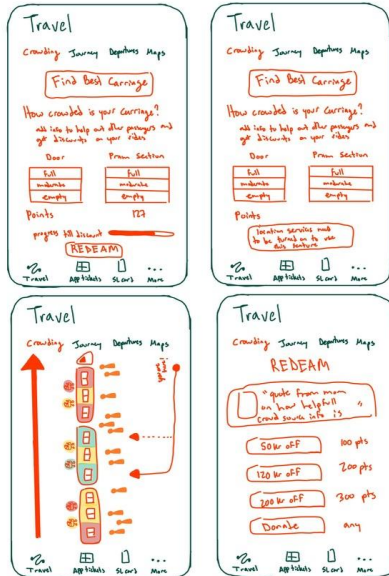 Travel
Crowding Journey Departures Maps
Find Best Carriage
How crowded is your Carriage?
add info to help out other passengers and
get discounts on your rides
Door Pram Section
full full
moderate moderate
empty empty
Points 127
progress till discount
REDEAM
Travel App tickets SL card More
Travel
Crowding Journey Departures Maps
Find Best Carriage
How crowded is your Carriage?
add info to help out other passengers and
get discounts on your rides
Door Pram Section
full full
moderate moderate
empty empty
Points
location services need
to be turned on to use
this feature
Travel App tickets SL card More
Travel
Crowding Journey Departures Maps
Travel App tickets SL card More
Travel
Crowding Journey Departures Maps
REDEAM
"quote from mom
on how helpfull
crowd source info is "
50 kr off 100 pts
120 kr off 200 pts
200 kr off 300 pts
Donate any
Travel App tickets SL card More